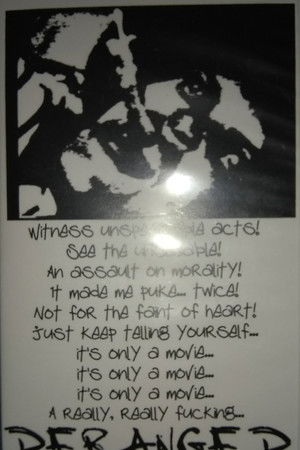 Witness unspeakable acts!
See the
An assault on morality!
It made me puke... twice!
Not for the faint of heart!
Just keep telling yourself...
it's only a movie...
it's only a movie...
it's only a movie...
A really, really fucking...
DERANGED